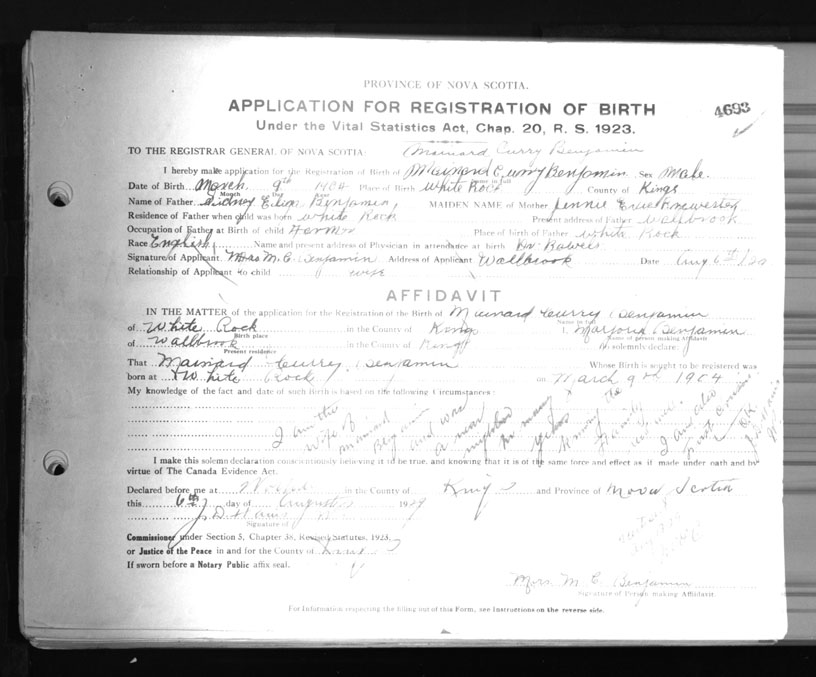 PROVINCE OF NOVA SCOTIA.
APPLICATION FOR REGISTRATION OF BIRTH
4693
Under the Vital Statistics Act, Chap. 20, R. S. 1923.
TO THE REGISTRAR GENERAL OF NOVA SCOTIA: Mainard Curry Benjamin
I hereby make application for the Registration of Birth of Mainard Curry Benjamin Sex Male.
Name in full
Date of Birth March 9th 1904 Place of Birth White Rock County of Kings
Month Day Year
Name of Father Sidney Benjamin MAIDEN NAME of Mother Jennie
Residence of Father when child was born White Rock Present address of Father Wallbrook
Occupation of Father at Birth of child Farmer Place of birth of Father White Rock
Race English Name and present address of Physician in attendance at birth Dr
Signature of Applicant Mrs M. C. Benjamin Address of Applicant Wallbrook Date Aug 6th
Relationship of Applicant to child wife
AFFIDAVIT
IN THE MATTER of the application for the Registration of the Birth of Mainard Curry Benjamin
Name in full
of White Rock in the County of Kings I, Marjorie Benjamin
Birth place Name of person making Affidavit
of Wallbrook in the County of Kings do solemnly declare:
Present residence
That Mainard Curry Benjamin Whose Birth is sought to be registered was
born at White Rock on March 9th 1904
My knowledge of the fact and date of such Birth is based on the following Circumstances:
I am the
wife of
Mainard
Benjamin
and was
a near
neighbor
for many
years
to
family
I am also
First cousin
O.K.
I make this solemn declaration conscientiously believing it to be true, and knowing that it is of the same force and effect as if made under oath and by
virtue of The Canada Evidence Act.
Declared before me at in the County of Kings and Province of Nova Scotia
this 6th day of August 1929
Signature of
Commissioner under Section 5, Chapter 38, Revised Statutes, 1923,
or Justice of the Peace in and for the County of Kings
If sworn before a Notary Public affix seal.
Mrs. M. C. Benjamin
Signature of Person making Affidavit.
For Information respecting the filling out of this Form, see Instructions on the reverse side.